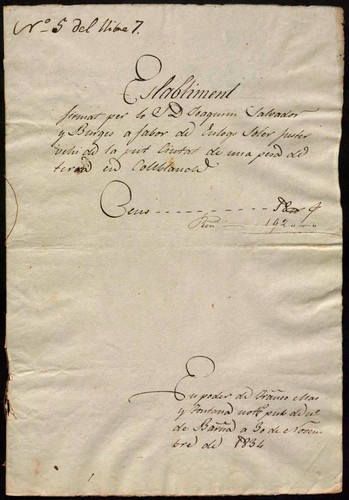 Nº 5 del llibre 7.
Establiment
firmat per lo Sr. Dn. Joaquim Salvador
y Burges a fabor de Soler fuster
vehi de la pnt Ciutat de una pesa de
terra en Collblanch
Cens
192
En poder de Franco. Mas
y Fontana noth. pub. de no.
de Barna. a 30 de Novem
bre de 1834